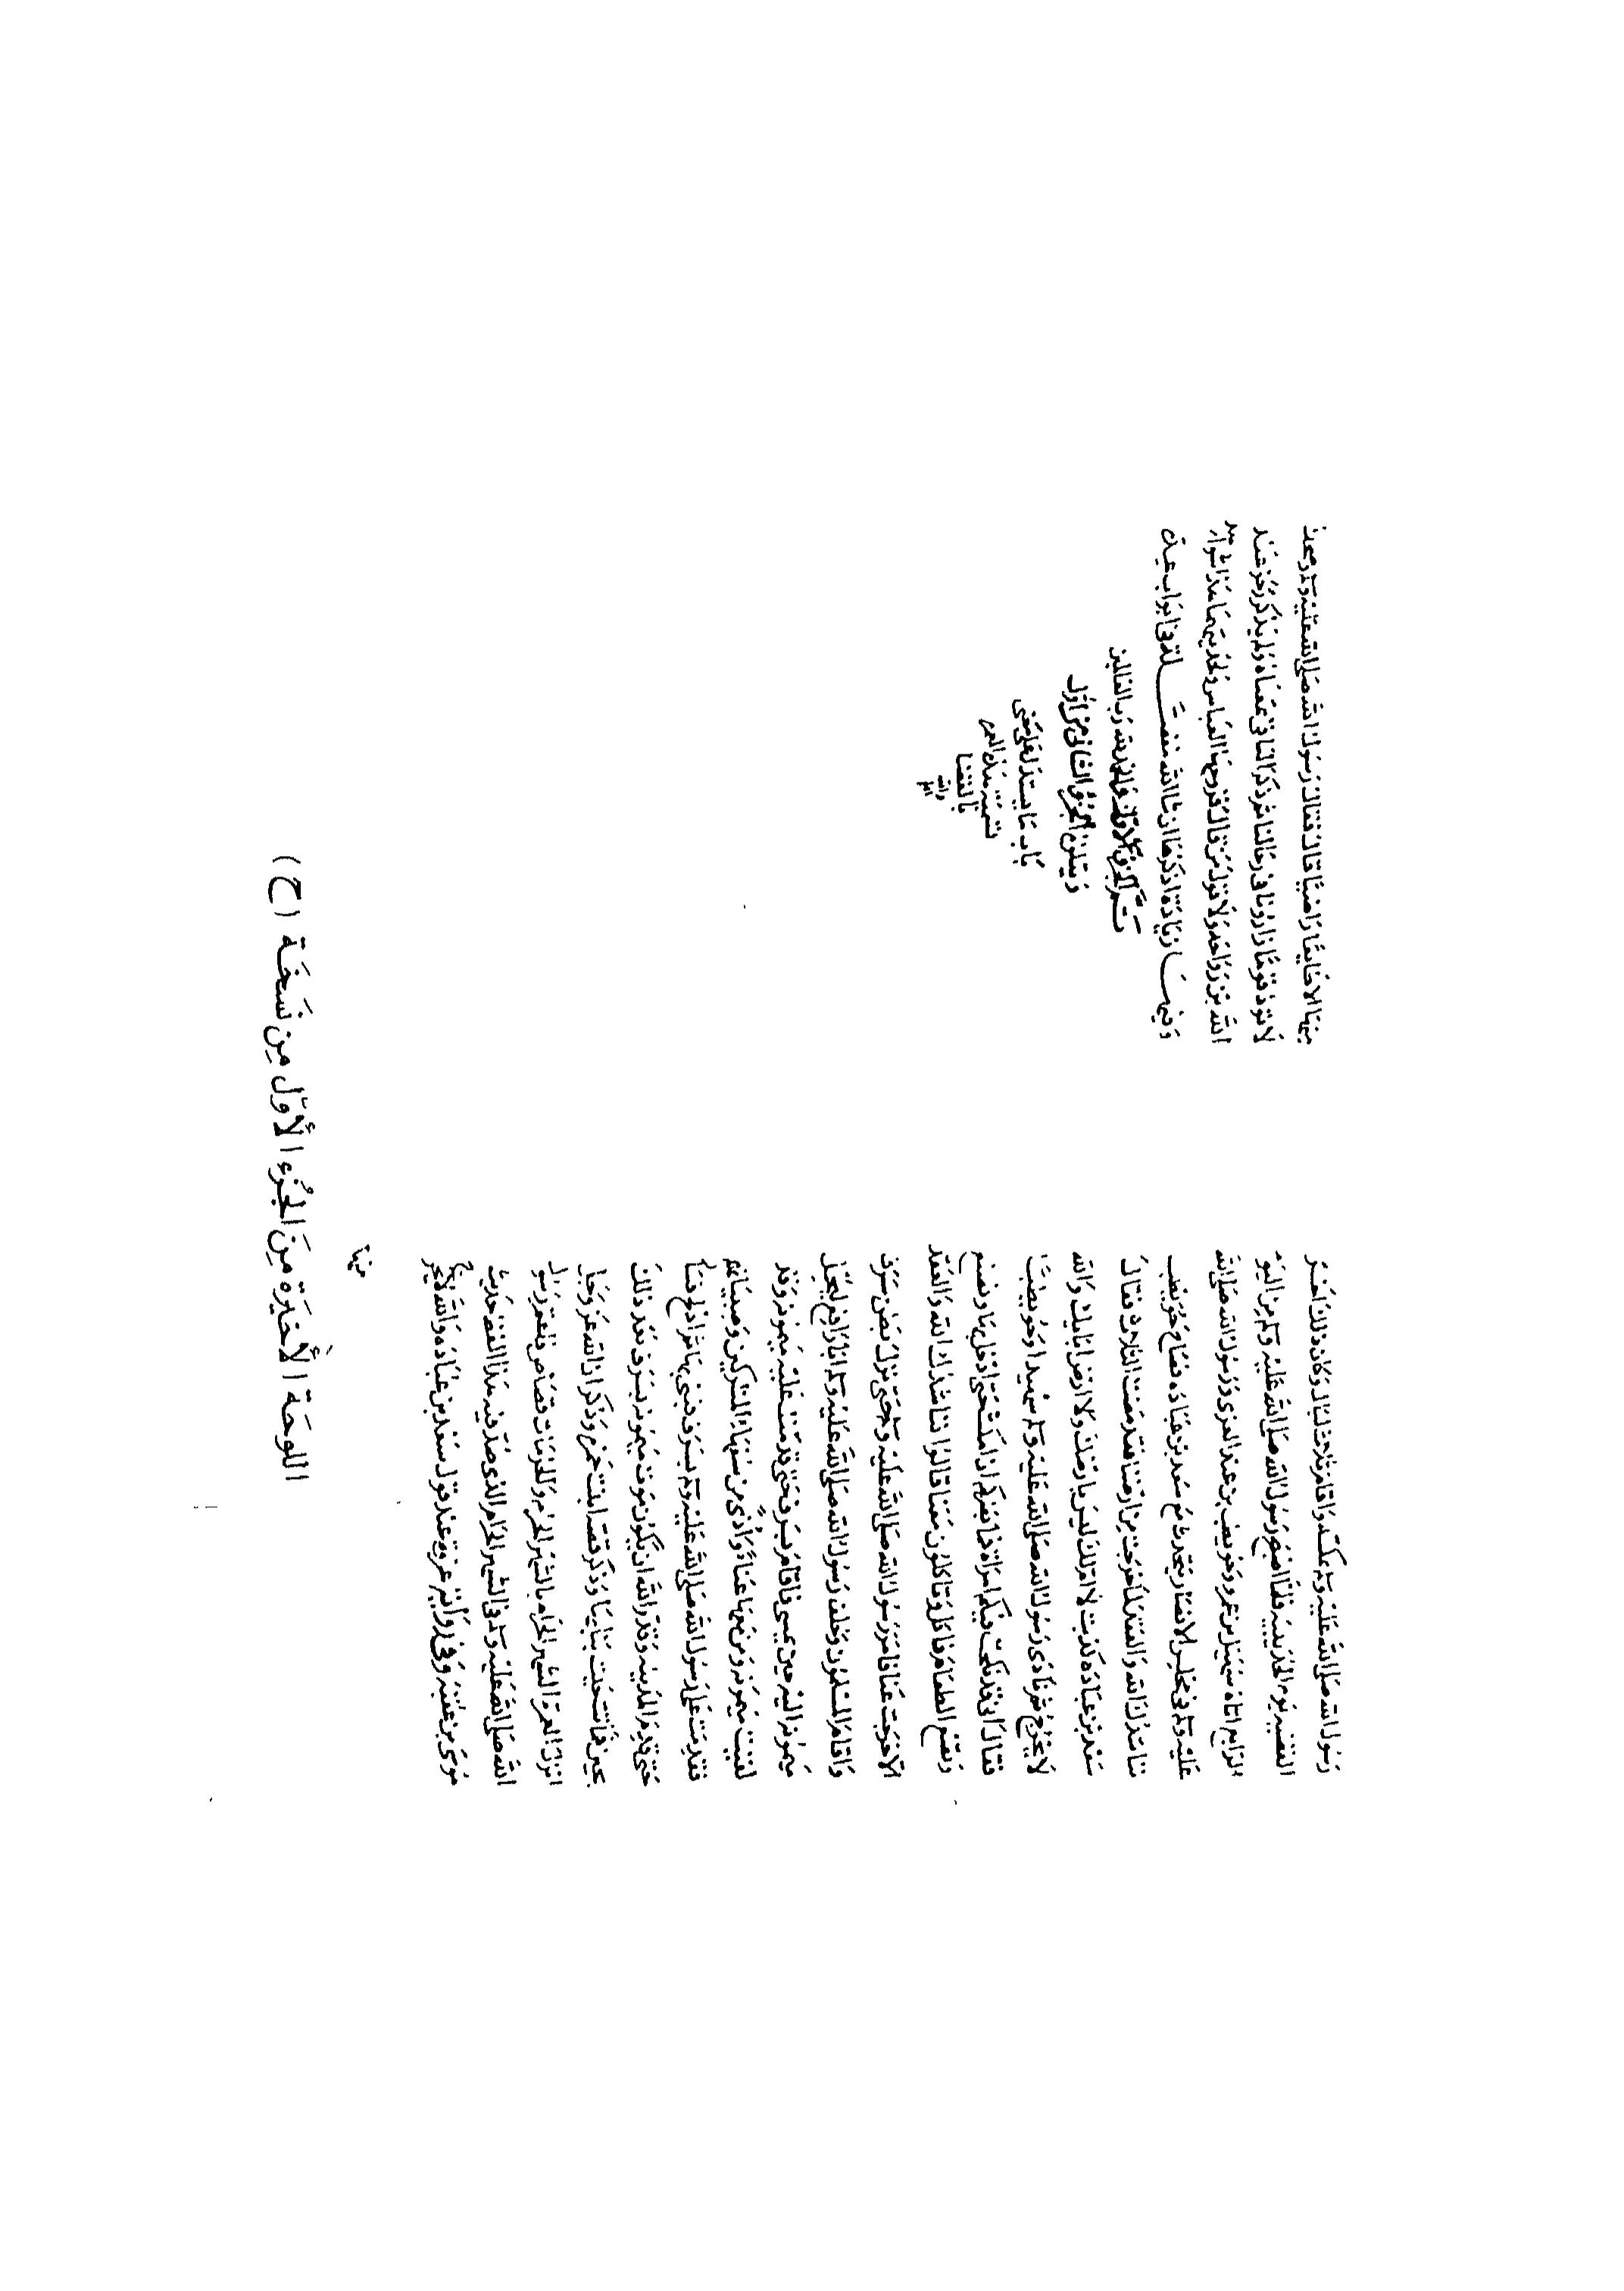 رسول الله صلى الله عليه وسلم بمكة واقام ثلاث ليال وكان ذلك اخر
القضية يوم الحديبية فلما اصبح رسول الله صلى الله عليه وسلم من اليوم
الرابع اتاه سهيل بن عمرو وحويطب بن عبد العزى ورسول الله صلى الله
عليه وسلم في مجلس الانصار يتحدث مع سعد بن عباده فصاح حويطب
نناشدك الله والعقد لما خرجت من ارضنا فقد مضت الثلاث فقال
سعد بن عباده كذبت لا ام لك ليس بارضك ولا ارض ابايك والله
لا يخرج ثم نادى رسول الله صلى الله عليه وسلم سهيلا وحويطبا
فقال انى قد نكحت فيكم امراة فما يضركم ان امكث حتى ادخل بها ونصنع
ونضع الطعام فناكل وتاكلون معنا قالوا نناشدك الله والعقد
الا خرجت عنا فامر رسول الله صلى الله عليه وسلم حتى نزل بطن سرف
واقام المسلمون وخلف رسول الله صلى الله عليه وسلم ابا رافع ليحمل
ميمونه اليه حين يمسى فاقام بسرف حتى قدمت عليه ميمونه وقد
لقيت ميمونه ومن معها عناء واذى من سفهاء المشركين وصبيانهم
فقدمت على رسول الله صلى الله عليه وسلم بسرف فبنى بها ثم ادلج فسار
حتى قدم المدينه وقدر الله ان يكون موت ميمونه بسرف بعد ذلك
بحين فماتت حيث بنا بها وذكر قصة ابنت حمزه وذكر ان الله عز وجل
انزل في العمرة الشهر الحرام بالشهر الحرام والحرمات قصاص فاعتمر رسول
الله صلى الله عليه وسلم في الشهر الحرام الذى صد فيه هذا لفظ حديث
موسى بن عقبه وفي رواية عروة عند قول سعد بن عباده والله لا يخرج
منها
منها الا طايعا راضيا قال فقال رسول الله صلى الله عليه وسلم وضحك
لا تؤذ قوما زارونا في رحالنا ثم ذكر الباقي بمعناه ولم يذكر رجز عبد
الله بن رواحه ولا قول من قال تزوجها العباس ولحديثهما هذا شواهد
وفيها زيادة اذكرها ان شا الله متفرقة في ابواب عمرة
تم الجزو الاول والحمد لله رب العالمين
ويتلوه الجزو الثاني من اول
باب ما يستدل به على معنى
تسميته هذه العمره
بالقضا
والله
اعلم
اللوحَة الأخيَرة مِنَ الجُزء الأوّل مِن نسْخَة (ح)